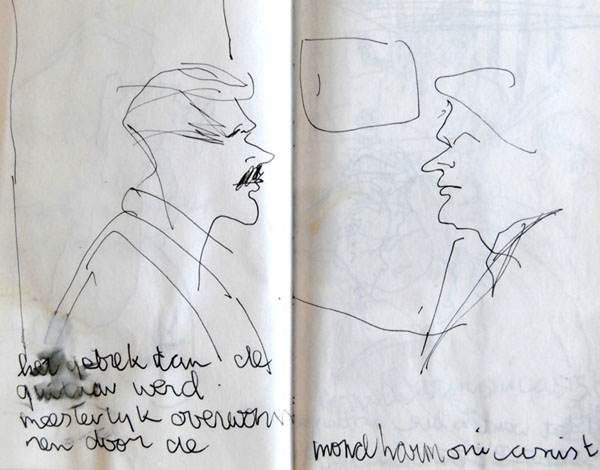 het gebrek van de
guitaar werd
meesterlijk overwon
nen door de
mondharmonicanist